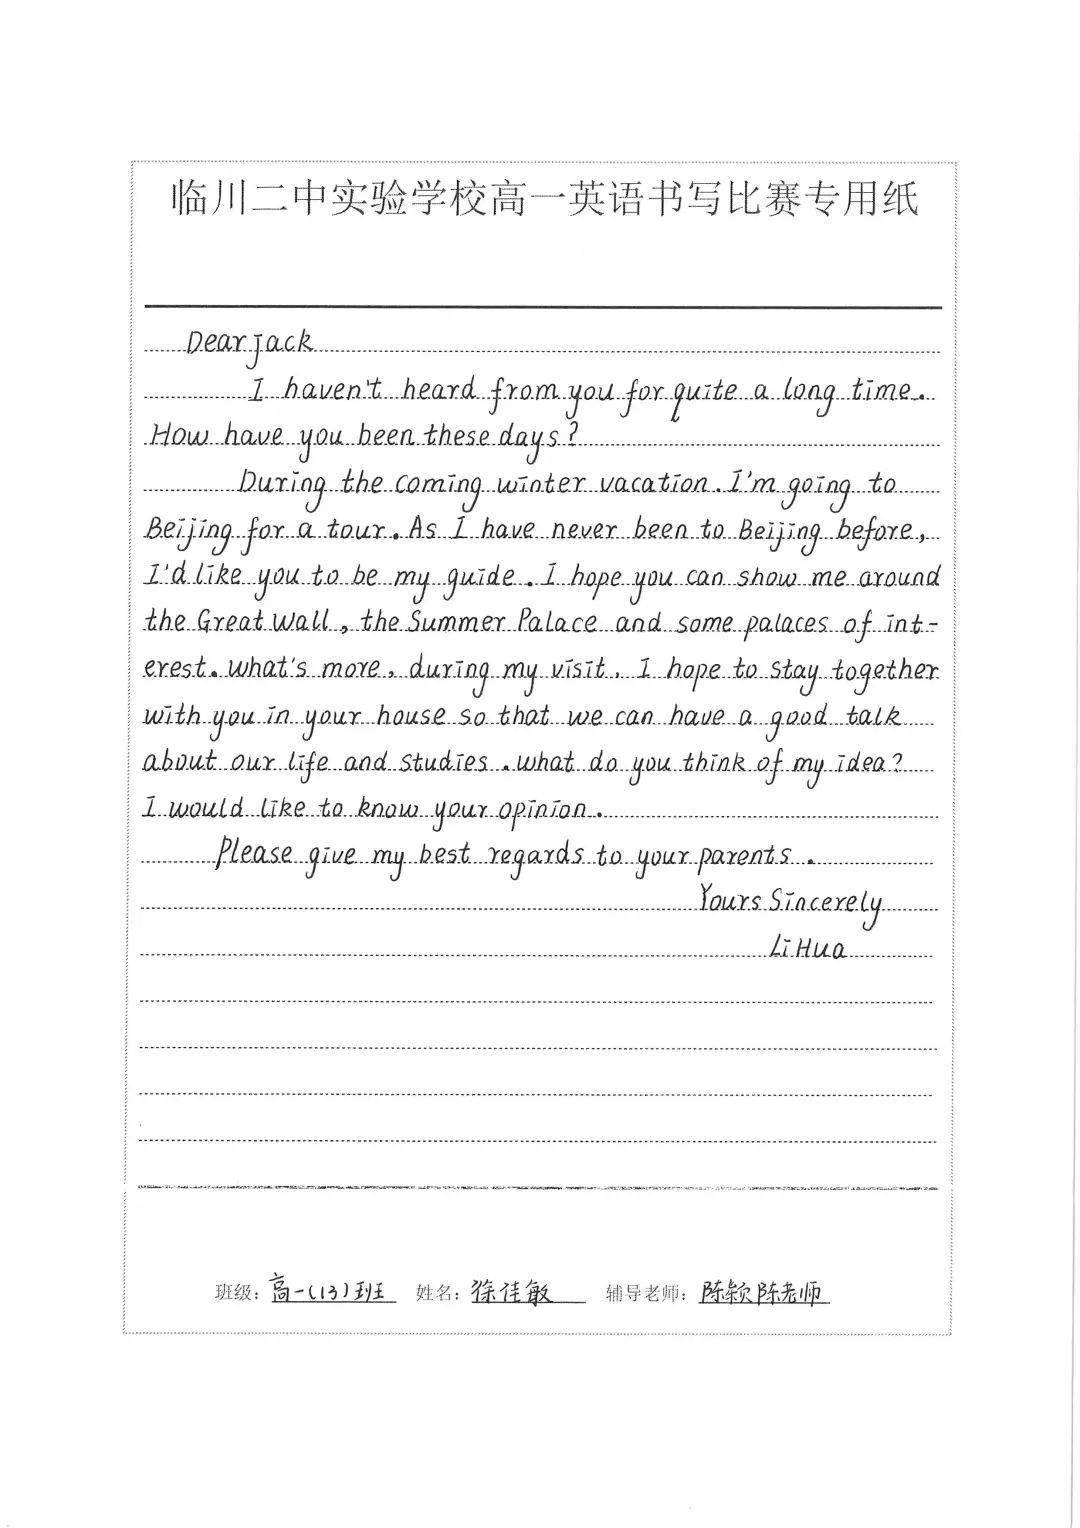 临川二中实验学校高一英语书写比赛专用纸
Dear jack
I haven't heard from you for quite a long time.
How have you been these days?
During the coming winter vacation. I'm going to
Beijing for a tour. As I have never been to Beijing before,
I'd like you to be my guide. I hope you can show me around
the Great Wall, the Summer Palace and some palaces of int-
erest. what's more, during my visit, I hope to stay together
with you in your house so that we can have a good talk
about our life and studies. what do you think of my idea?
I would like to know your opinion.
Please give my best regards to your parents.
Yours Sincerely
Li Hua
班级: 高一(13)班 姓名: 徐佳敏 辅导老师: 陈颖陈老师